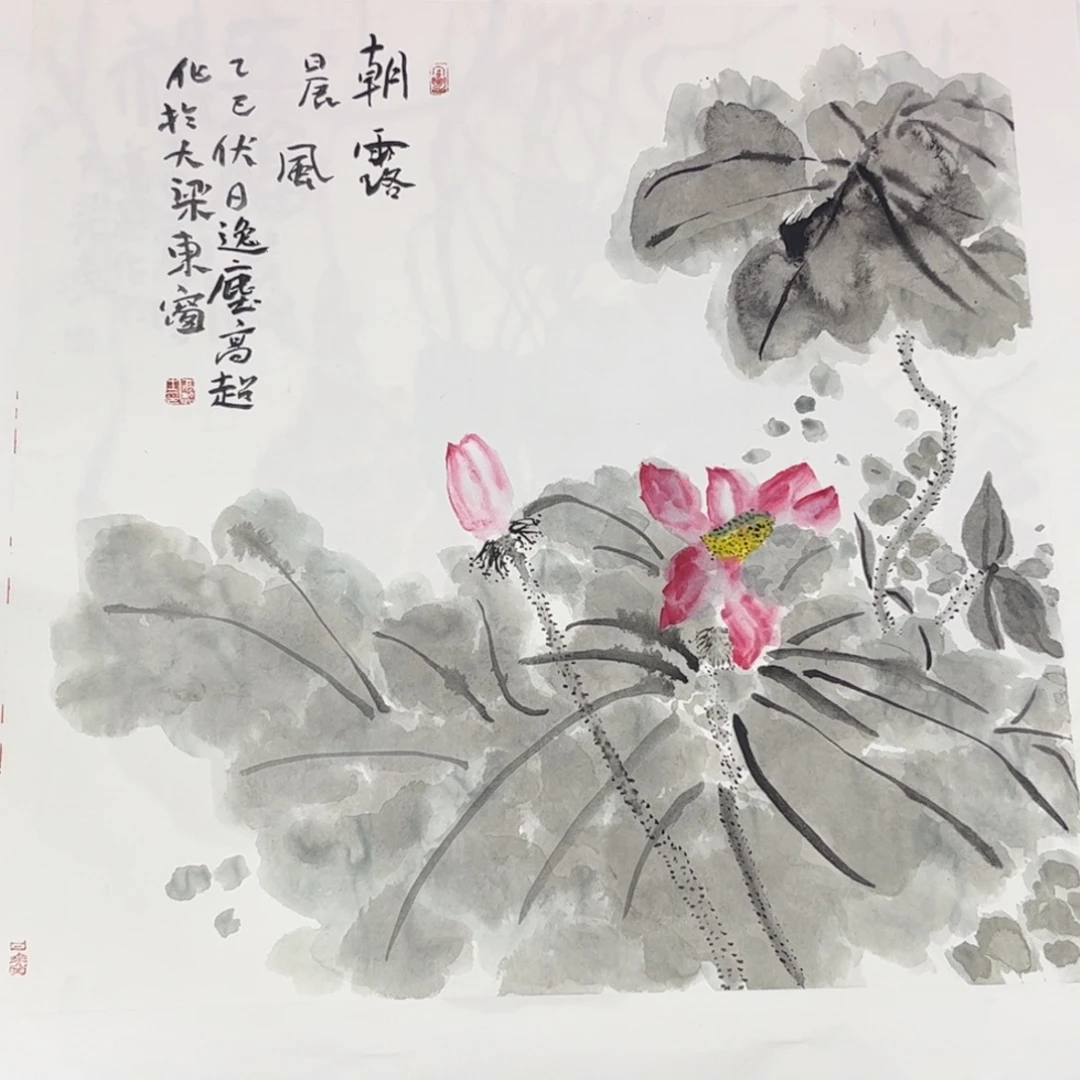 朝露
晨風
乙巳伏日逸塵高超
作於大梁東窗